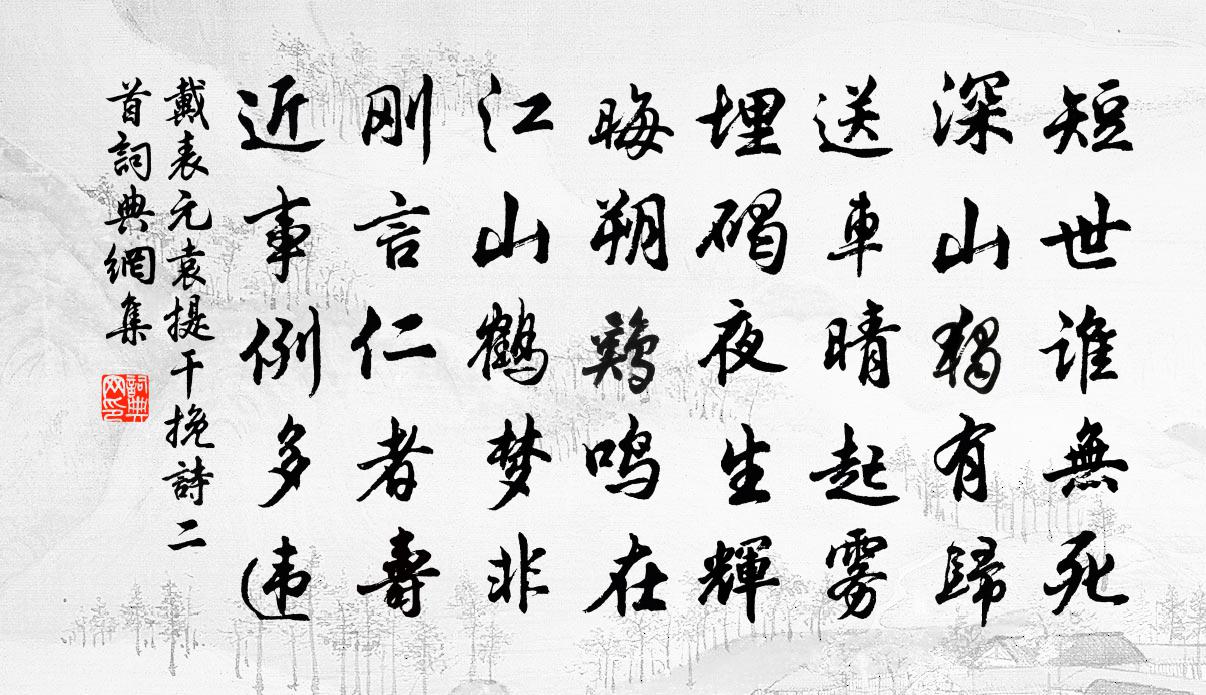 短世谁無死
深山獨有歸
送車晴起雾
埋碣夜生輝
晦朔鷄鸣在
江山鶴梦非
刚言仁者壽
近事例多违
戴表元袁提干挽詩二
首詞典網集
詞典网印